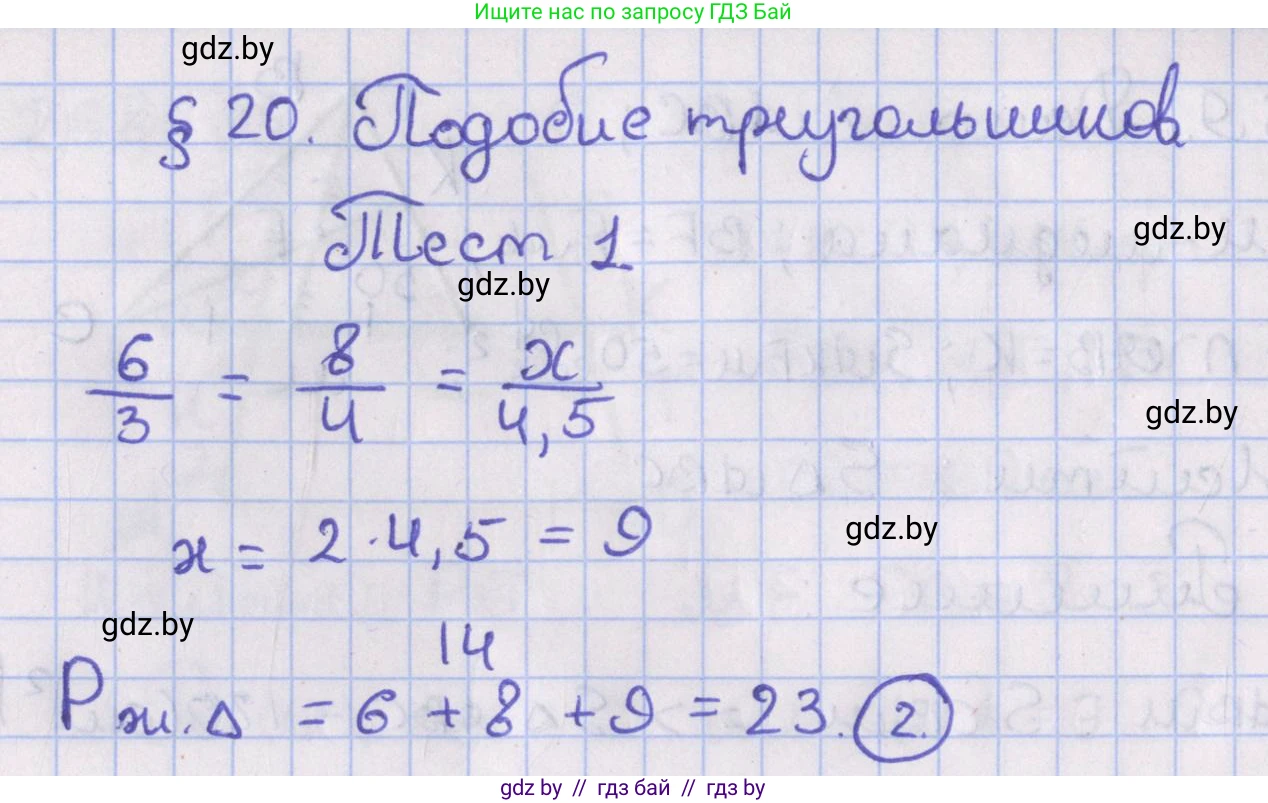 Ищите нас по запросу ГДЗ Бай
gdz.by
§ 20. Подобие треугольников
Тест 1
gdz.by
gdz.by
6/3 = 8/4 = x/4,5
gdz.by
x = 2·4,5 = 9
gdz.by
gdz.by
14
Pж.Δ = 6 + 8 + 9 = 23. 2.
gdz.by // гдз бай // gdz.by